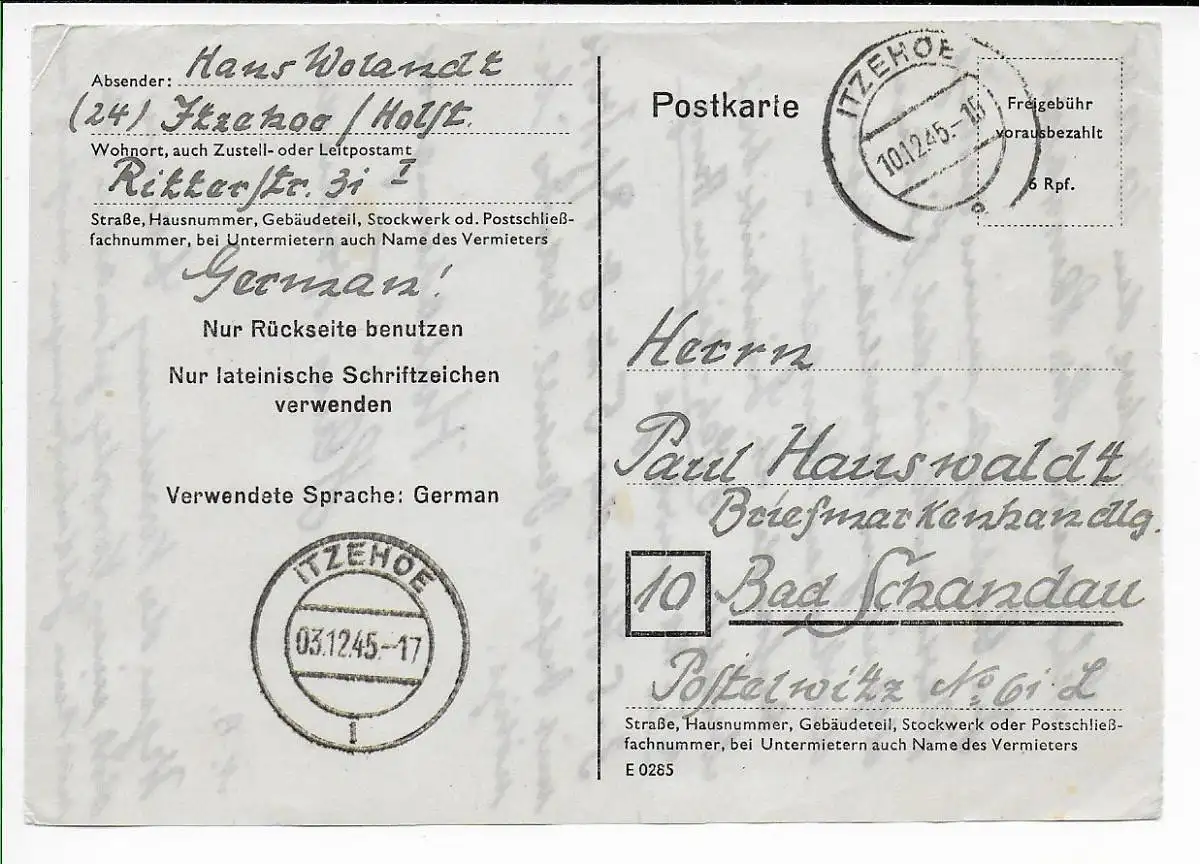 Absender: Hans Wolandt
(24) Itzehoe / Holst.
Wohnort, auch Zustell- oder Leitpostamt
Ritterstr. 31 I
Straße, Hausnummer, Gebäudeteil, Stockwerk od. Postschließ-
fachnummer, bei Untermietern auch Name des Vermieters
German!
Nur Rückseite benutzen
Nur lateinische Schriftzeichen
verwenden
Verwendete Sprache: German
ITZEHOE
03.12.45.-17
Postkarte
ITZEHOE
10.12.45.-15
Freigebühr
vorausbezahlt
6 Rpf.
Herrn
Paul Hauswaldt
Briefmarkenhandlg.
10 Bad Schandau
Postelwitz No. 61 L
Straße, Hausnummer, Gebäudeteil, Stockwerk oder Postschließ-
fachnummer, bei Untermietern auch Name des Vermieters
E 0285